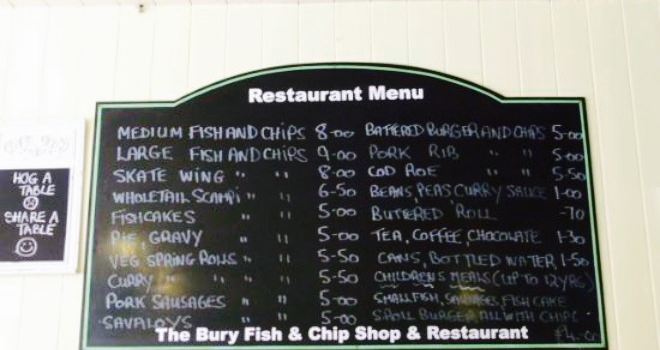 Restaurant Menu
MEDIUM FISH AND CHIPS 8-00
LARGE FISH AND CHIPS 9-00
SKATE WING " " 8-00
WHOLETAIL SCAMPI " " 6-50
FISHCAKES " " 5-00
PIE, GRAVY " " 5-00
VEG SPRING ROLLS " " 5-50
CURRY " " " 5-50
PORK SAUSAGES " " 5-00
SAVALOYS " " 5-00
BATTERED BURGER AND CHIPS 5-00
PORK RIB " " 5-00
COD ROE " " 5-50
BEANS, PEAS CURRY SAUCE 1-00
BUTTERED ROLL -70
TEA, COFFEE, CHOCOLATE 1-30
CANS, BOTTLED WATER, 1-50
CHILDRENS MEALS (UP TO 12YRS)
SMALL FISH, SAUSAGES, FISH CAKE
BURGER ALL WITH CHIPS
The Bury Fish & Chip Shop & Restaurant
HOG A
TABLE
☹
SHARE A
TABLE
☺